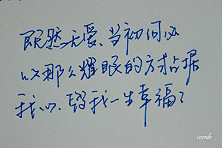 既然无爱、当初何必
以那么耀眼的方式占据
我心.给我一生幸福?